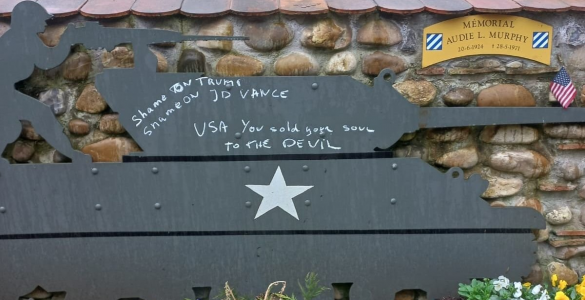 MÉMORIAL
AUDIE L. MURPHY
20-6-1924 † 28-5-1971
Shame ON TRUMP
Shame ON JD VANCE
USA You sold your soul
to the DEVIL